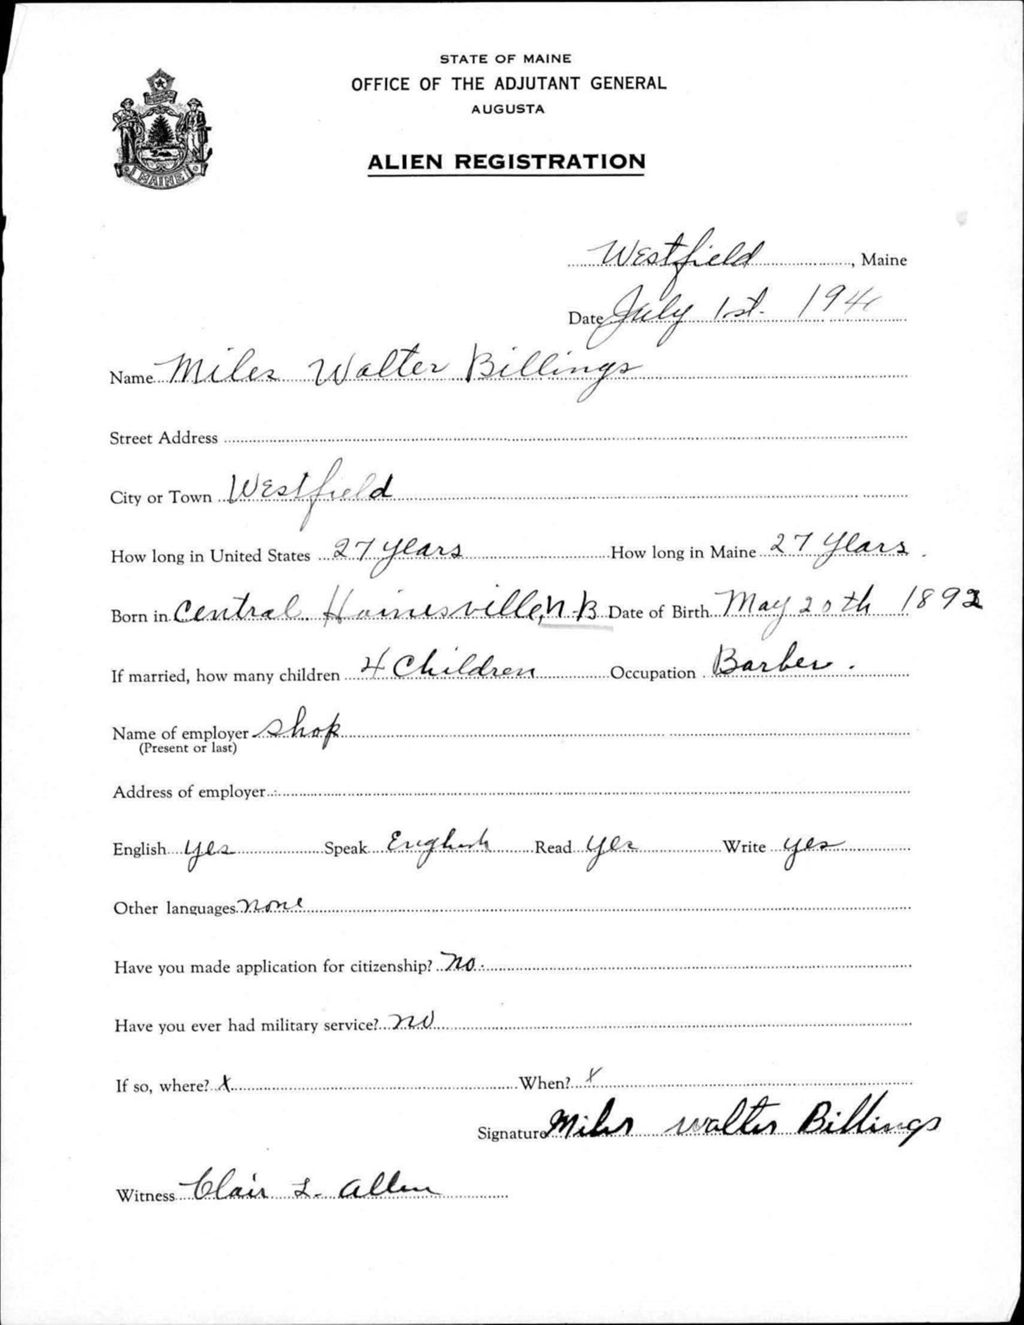 STATE OF MAINE
OFFICE OF THE ADJUTANT GENERAL
AUGUSTA
MAINE
ALIEN REGISTRATION
Westfield, Maine
Date July 1st. 194
Name Miles Walter Billings
Street Address
City or Town Westfield
How long in United States 27 years How long in Maine 27 years.
Born in Central Hainesville, N.B. Date of Birth May 20th 1892
If married, how many children 4 Children Occupation Barber.
Name of employer Shop
(Present or last)
Address of employer
English yes Speak English Read yes Write yes
Other languages none
Have you made application for citizenship? No.
Have you ever had military service? no
If so, where? X When? X
Signature Miles Walter Billings
Witness Clair L. Allen